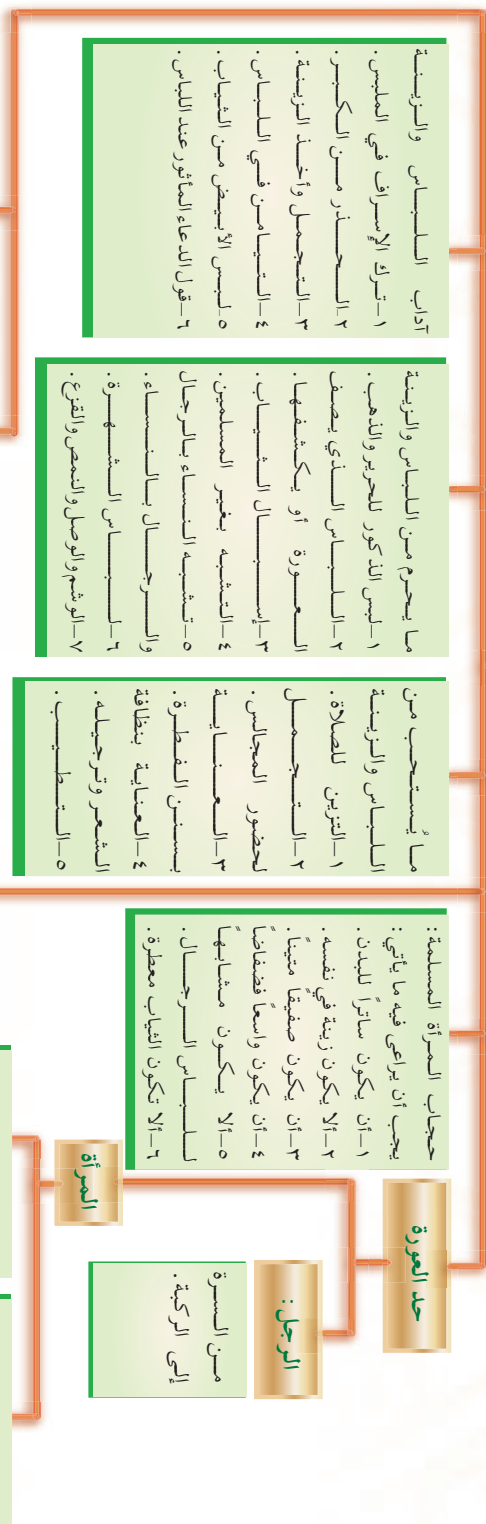 آداب اللباس والزينة
١–ترك الإسراف في الملبس.
٢–الحذر من الكبر.
٣–التجمل وأخذ الزينة.
٤–التيامن في اللباس.
٥–لبس الأبيض من الثياب.
٦–قول الدعاء المأثور عند اللباس.
ما يحرم من اللباس والزينة
١–لبس الذكور للحرير والذهب.
٢–اللباس الذي يصف
العورة أو يكشفها.
٣–إسبال الثياب.
٤–التشبه بغير المسلمين.
٥–تشبه النساء بالرجال
والرجال بالنساء.
٦–لباس الشهرة.
٧–الوشم والوصل والنمص والقزع.
ما يُستحب من
اللباس والزينة
١–التزين للصلاة.
٢–التجمل
لحضور المجالس.
٣–العناية
بسنن الفطرة.
٤–العناية بنظافة
الشعر وترجيله.
٥–التطيب.
حجاب المرأة المسلمة:
يجب أن يراعى فيه ما يأتي:
١–أن يكون ساتراً للبدن.
٢–ألا يكون زينة في نفسه.
٣–أن يكون صفيقاً متيناً.
٤–أن يكون واسعاً فضفاضاً
٥–ألا يكون مشابهاً
للباس الرجال.
٦–ألا تكون الثياب معطرة.
حد العورة
الرجل:
من السرة
إلى الركبة.
المرأة